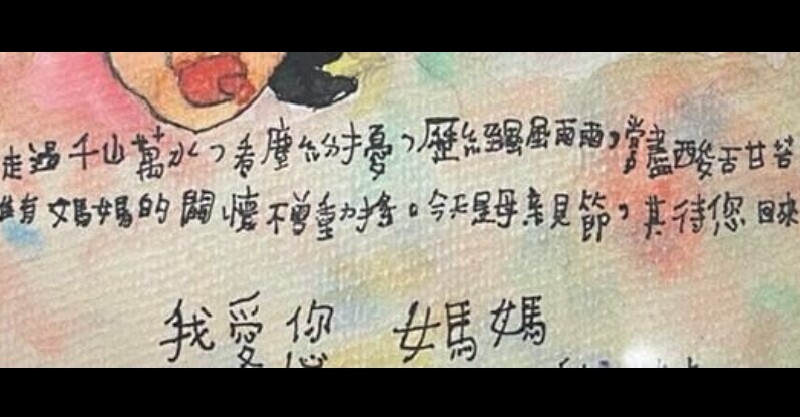 走過千山萬水，看塵紛擾，歷經風風雨雨，嘗盡酸苦甘苦
唯有媽媽的關懷不曾動搖。今天是母親節，其待您回來
我愛您 媽媽